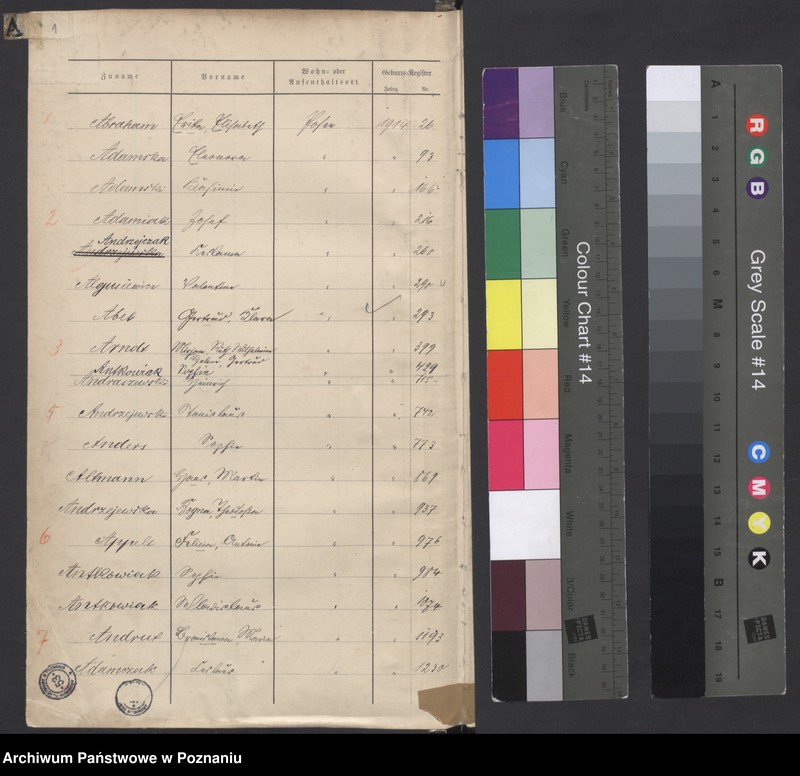 A 1
Zuname Vorname Wohn- oder Aufenthaltsort Geburts-Register
Jahrg. Nr.
1 Abraham Erika, Elisabeth Posen 1914 26
Adamska Eleonora " " 93
Adamski Kasimir " " 166
2 Adamiak Josef " " 216
Andrzejczak
" " 260
Valentin " " 290
Abel Gertrud, Klara " " 293
3 Arndt Wilhelmine " " 399
Gertrud
Antkowiak Sophie " " 429
Andraszewski Heinrich " " 715
5 Andrzejewski Stanislaus " " 742
Anders Sophie " " 773
Altmann Martin " " 869
Andrzejewska Bogna, " " 957
6 Appelt Felicia, " " 976
Antkowiak Sophie " " 984
Antkowiak Wladislaus " " 1074
7 Andrut Bronislawa, Maria " " 1193
Adamczak " " 1230
53
Colour Chart #14
Blue
Cyan
Green
Yellow
Red
Magenta
White
3/Color
Black
Centimetres
Inches
DANES PICTA
Grey Scale #14
R G B
C M Y K
A 1 2 3 4 5 6 M 8 9 10 11 12 13 14 15 B 17 18 19
DANES PICTA
Archiwum Państwowe w Poznaniu